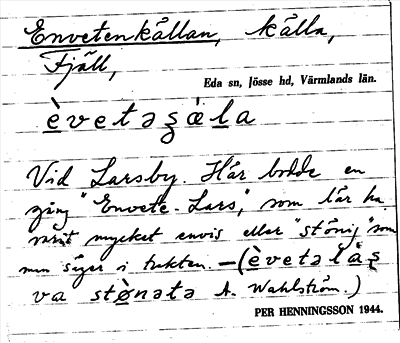 Envetenkällan, källa,
Fjäll,
Eda sn, Jösse hd, Värmlands län.
èvetəʂä̀la
Vid Larsby. Här bodde en
gång "Envete-Lars", som lär ha
varit mycket envis eller "stönig" som
man säger i trakten. — (èvetəlàʂ
va stø̀nətə A. Wahlström.)
PER HENNINGSSON 1944.